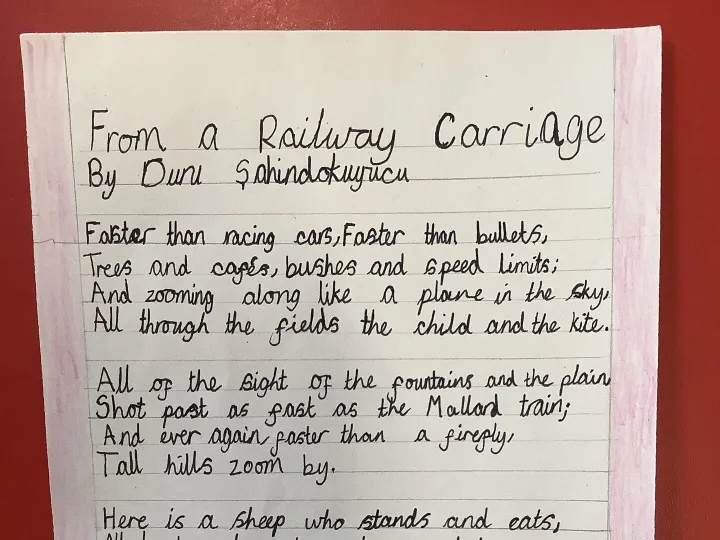 From a Railway Carriage
By Duru Şahindokuyucu
Faster than racing cars, Faster than bullets,
Trees and cafés, bushes and speed limits;
And zooming along like a plane in the sky,
All through the fields the child and the kite.
All of the sight of the fountains and the plain
Shot past as fast as the Mallard train;
And ever again, faster than a firefly,
Tall hills zoom by.
Here is a sheep who stands and eats,